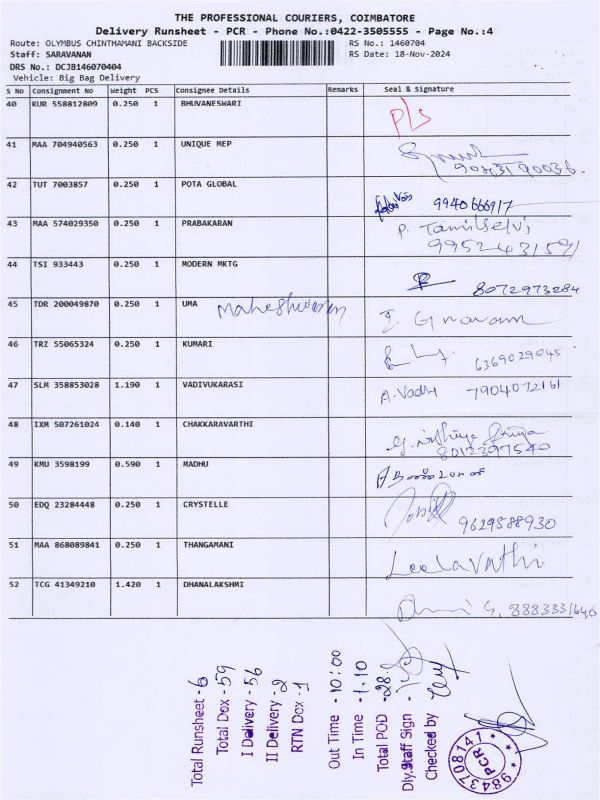 THE PROFESSIONAL COURIERS, COIMBATORE
Delivery Runsheet - PCR - Phone No.:0422-3505555 - Page No.:4
Route: OLYMBUS CHINTHAMANI BACKSIDE RS No.: 1460704
Staff: SARAVANAN RS Date: 18-Nov-2024
DRS No.: DCJB146070404
Vehicle: Big Bag Delivery
S No Consignment No Weight PCS Consignee Details Remarks Seal & Signature
40 KUR 558812809 0.250 1 BHUVANESWARI P/S
41 MAA 704940563 0.250 1 UNIQUE MEP
42 TUT 7003857 0.250 1 POTA GLOBAL 9940666917
43 MAA 574029350 0.250 1 PRABAKARAN P. Tamilselvi
9952431591
44 TSI 933443 0.250 1 MODERN MKTG 8072973284
45 TDR 200049870 0.250 1 UMA Maheshwaran
46 TRZ 55065324 0.250 1 KUMARI 6369029045
47 SLM 358853028 1.190 1 VADIVUKARASI A. Vadhi 7904072161
48 IXM 507261024 0.140 1 CHAKKARAVARTHI
8012397540
49 KMU 3598199 0.590 1 MADHU
50 EDQ 23284448 0.250 1 CRYSTELLE 9629588930
51 MAA 868089841 0.250 1 THANGAMANI Leelavathi
52 TCG 41349210 1.420 1 DHANALAKSHMI
Total Runsheet - 6
Total Dox - 59
I Delivery - 56
II Delivery - 2
RTN Dox - 1
Out Time - 10:00
In Time - 1.10
Total POD - 28
Dly.Staff Sign -
Checked by
PCR
9843708141